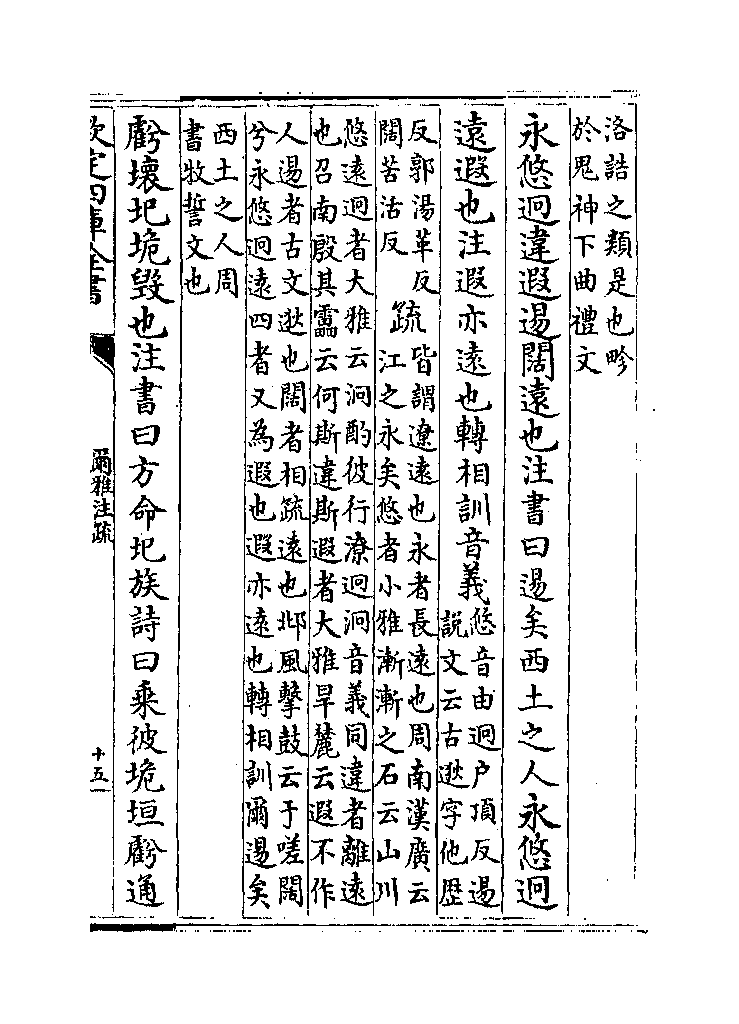 洛誥之類是也畛
於鬼神下曲禮文
永悠迥違遐逷闊遠也注書曰逷矣西土之人永悠迥
遠遐也注遐亦遠也轉相訓音義悠音由迥户頂反逷
說文云古逖字他歴
反郭湯革反
闊苦活反
疏皆謂遼遠也永者長遠也周南漢廣云
江之永矣悠者小雅漸漸之石云山川
悠遠迥者大雅云泂酌彼行潦迥泂音義同違者離遠
也召南殷其靁云何斯違斯遐者大雅旱麓云遐不作
人逷者古文逖也闊者相疏遠也邶風擊鼓云于嗟闊
兮永悠迥遠四者又為遐也遐亦遠也轉相訓爾逷矣
西土之人周
書牧誓文也
虧壞圯垝毀也注書曰方命圯族詩曰乘彼垝垣虧通
欽定四庫全書
爾雅注疏
十五